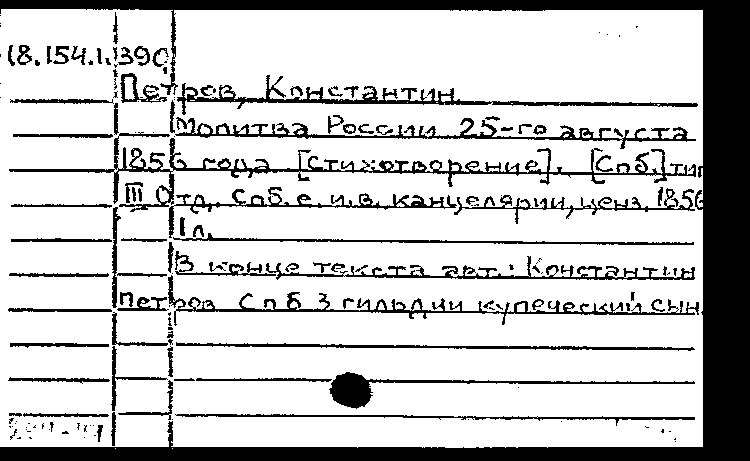 18.154.1.390
Петров, Константин
Молитва России 25-го августа
1856 года [стихотворение]. [Спб.] тип
III Отд. Спб. е. и. в. канцелярии, ценз. 1856
1 л.
В конце текста авт.: Константин
Петров Спб 3 гильдии купеческий сын.